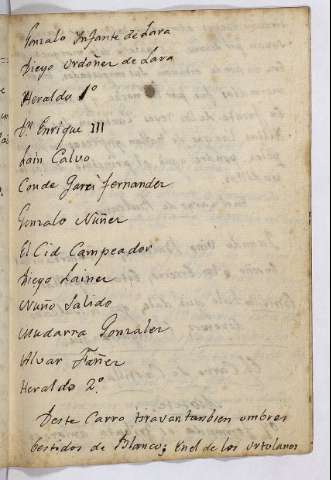 Gonzalo Infante de Lara
Diego Ordoñez de Lara
Heraldo 1º
Dn Enrique III
Lain Calvo
Conde Garci fernandez
Gonzalo Nuñez
El Cid Campeador
Diego Lainez
Nuño Salido
Mudarra Gonzalez
Alvar Fañez
Heraldo 2º
Deste Carro tiravan tanbien ombres
bestidos de Blanco; En el de los ortolanos